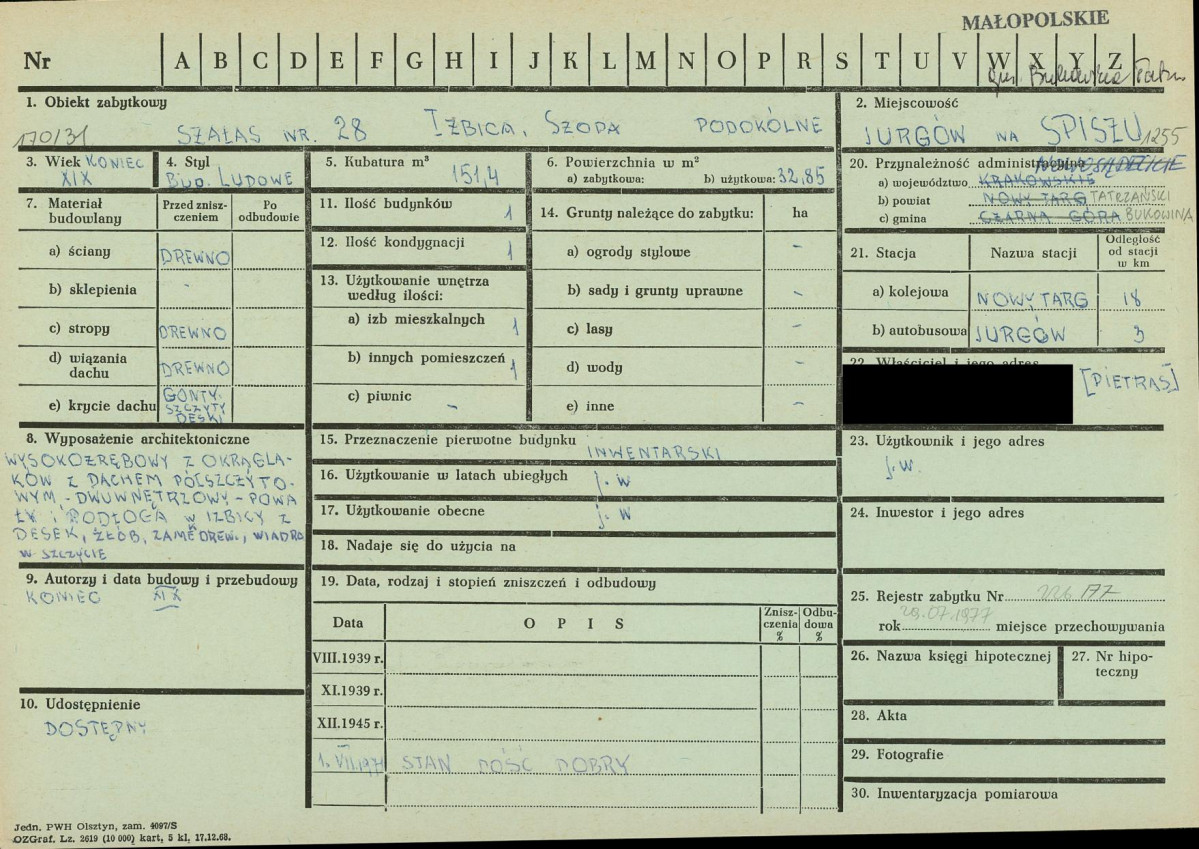 MAŁOPOLSKIE
Nr A B C D E F G H I J K L M N O P R S T U V W X Y Z
gm. Bukowina Tatrz.
1. Obiekt zabytkowy
170/31 SZAŁAS NR. 28 IZBICA, SZOPA PODOKÓLNE
2. Miejscowość
JURGÓW NA SPISZU 1255
3. Wiek KONIEC
XIX
4. Styl
BUD. LUDOWE
5. Kubatura m³
151,4
6. Powierzchnia w m²
a) zabytkowa: b) użytkowa: 32,85
7. Materiał budowlany
Przed znisz-
czeniem
Po
odbudowie
a) ściany DREWNO
b) sklepienia -
c) stropy DREWNO
d) wiązania
dachu DREWNO
e) krycie dachu GONTY
SZCZYTY
DESKI
8. Wyposażenie architektoniczne
WYSOKOZRĘBOWY Z OKRĄGLA-
KÓW Z DACHEM PÓŁSZCZYTO-
WYM - DWUWNĘTRZOWY - POWA
ŁY i PODŁOGA W IZBICY Z
DESEK, ŻŁÓB, ZAMĘ DREW., WIADRO
W SZCZYCIE
9. Autorzy i data budowy i przebudowy
KONIEC XIX
10. Udostępnienie
DOSTĘPNY
11. Ilość budynków 1
12. Ilość kondygnacji 1
13. Użytkowanie wnętrza
według ilości:
a) izb mieszkalnych 1
b) innych pomieszczeń 1
c) piwnic -
14. Grunty należące do zabytku: ha
a) ogrody stylowe -
b) sady i grunty uprawne -
c) lasy -
d) wody -
e) inne -
15. Przeznaczenie pierwotne budynku INWENTARSKI
16. Użytkowanie w latach ubiegłych j. w
17. Użytkowanie obecne j. w
18. Nadaje się do użycia na
19. Data, rodzaj i stopień zniszczeń i odbudowy
Data O P I S Znisz-
czenia
% Odbu-
dowa
%
VIII.1939 r.
XI.1939 r.
XII.1945 r.
1. VII.1971 STAN DOŚĆ DOBRY
20. Przynależność administracyjna NOWOSĄDECKIE
a) województwo KRAKOWSKIE
b) powiat NOWY TARG TATRZAŃSKI
c) gmina CZARNA GÓRA BUKOWINA
21. Stacja Nazwa stacji Odległość
od stacji
w km
a) kolejowa NOWY TARG 18
b) autobusowa JURGÓW 3
22. Właściciel i jego adres
[PIETRAS]
23. Użytkownik i jego adres
j. w.
24. Inwestor i jego adres
25. Rejestr zabytku Nr 226/77
rok 29.07.1977 miejsce przechowywania
26. Nazwa księgi hipotecznej
27. Nr hipo-
teczny
28. Akta
29. Fotografie
30. Inwentaryzacja pomiarowa
Jedn. PWH Olsztyn, zam. 4097/S
OZGraf. Lz. 2619 (10 000) kart, 5 kl. 17.12.68.